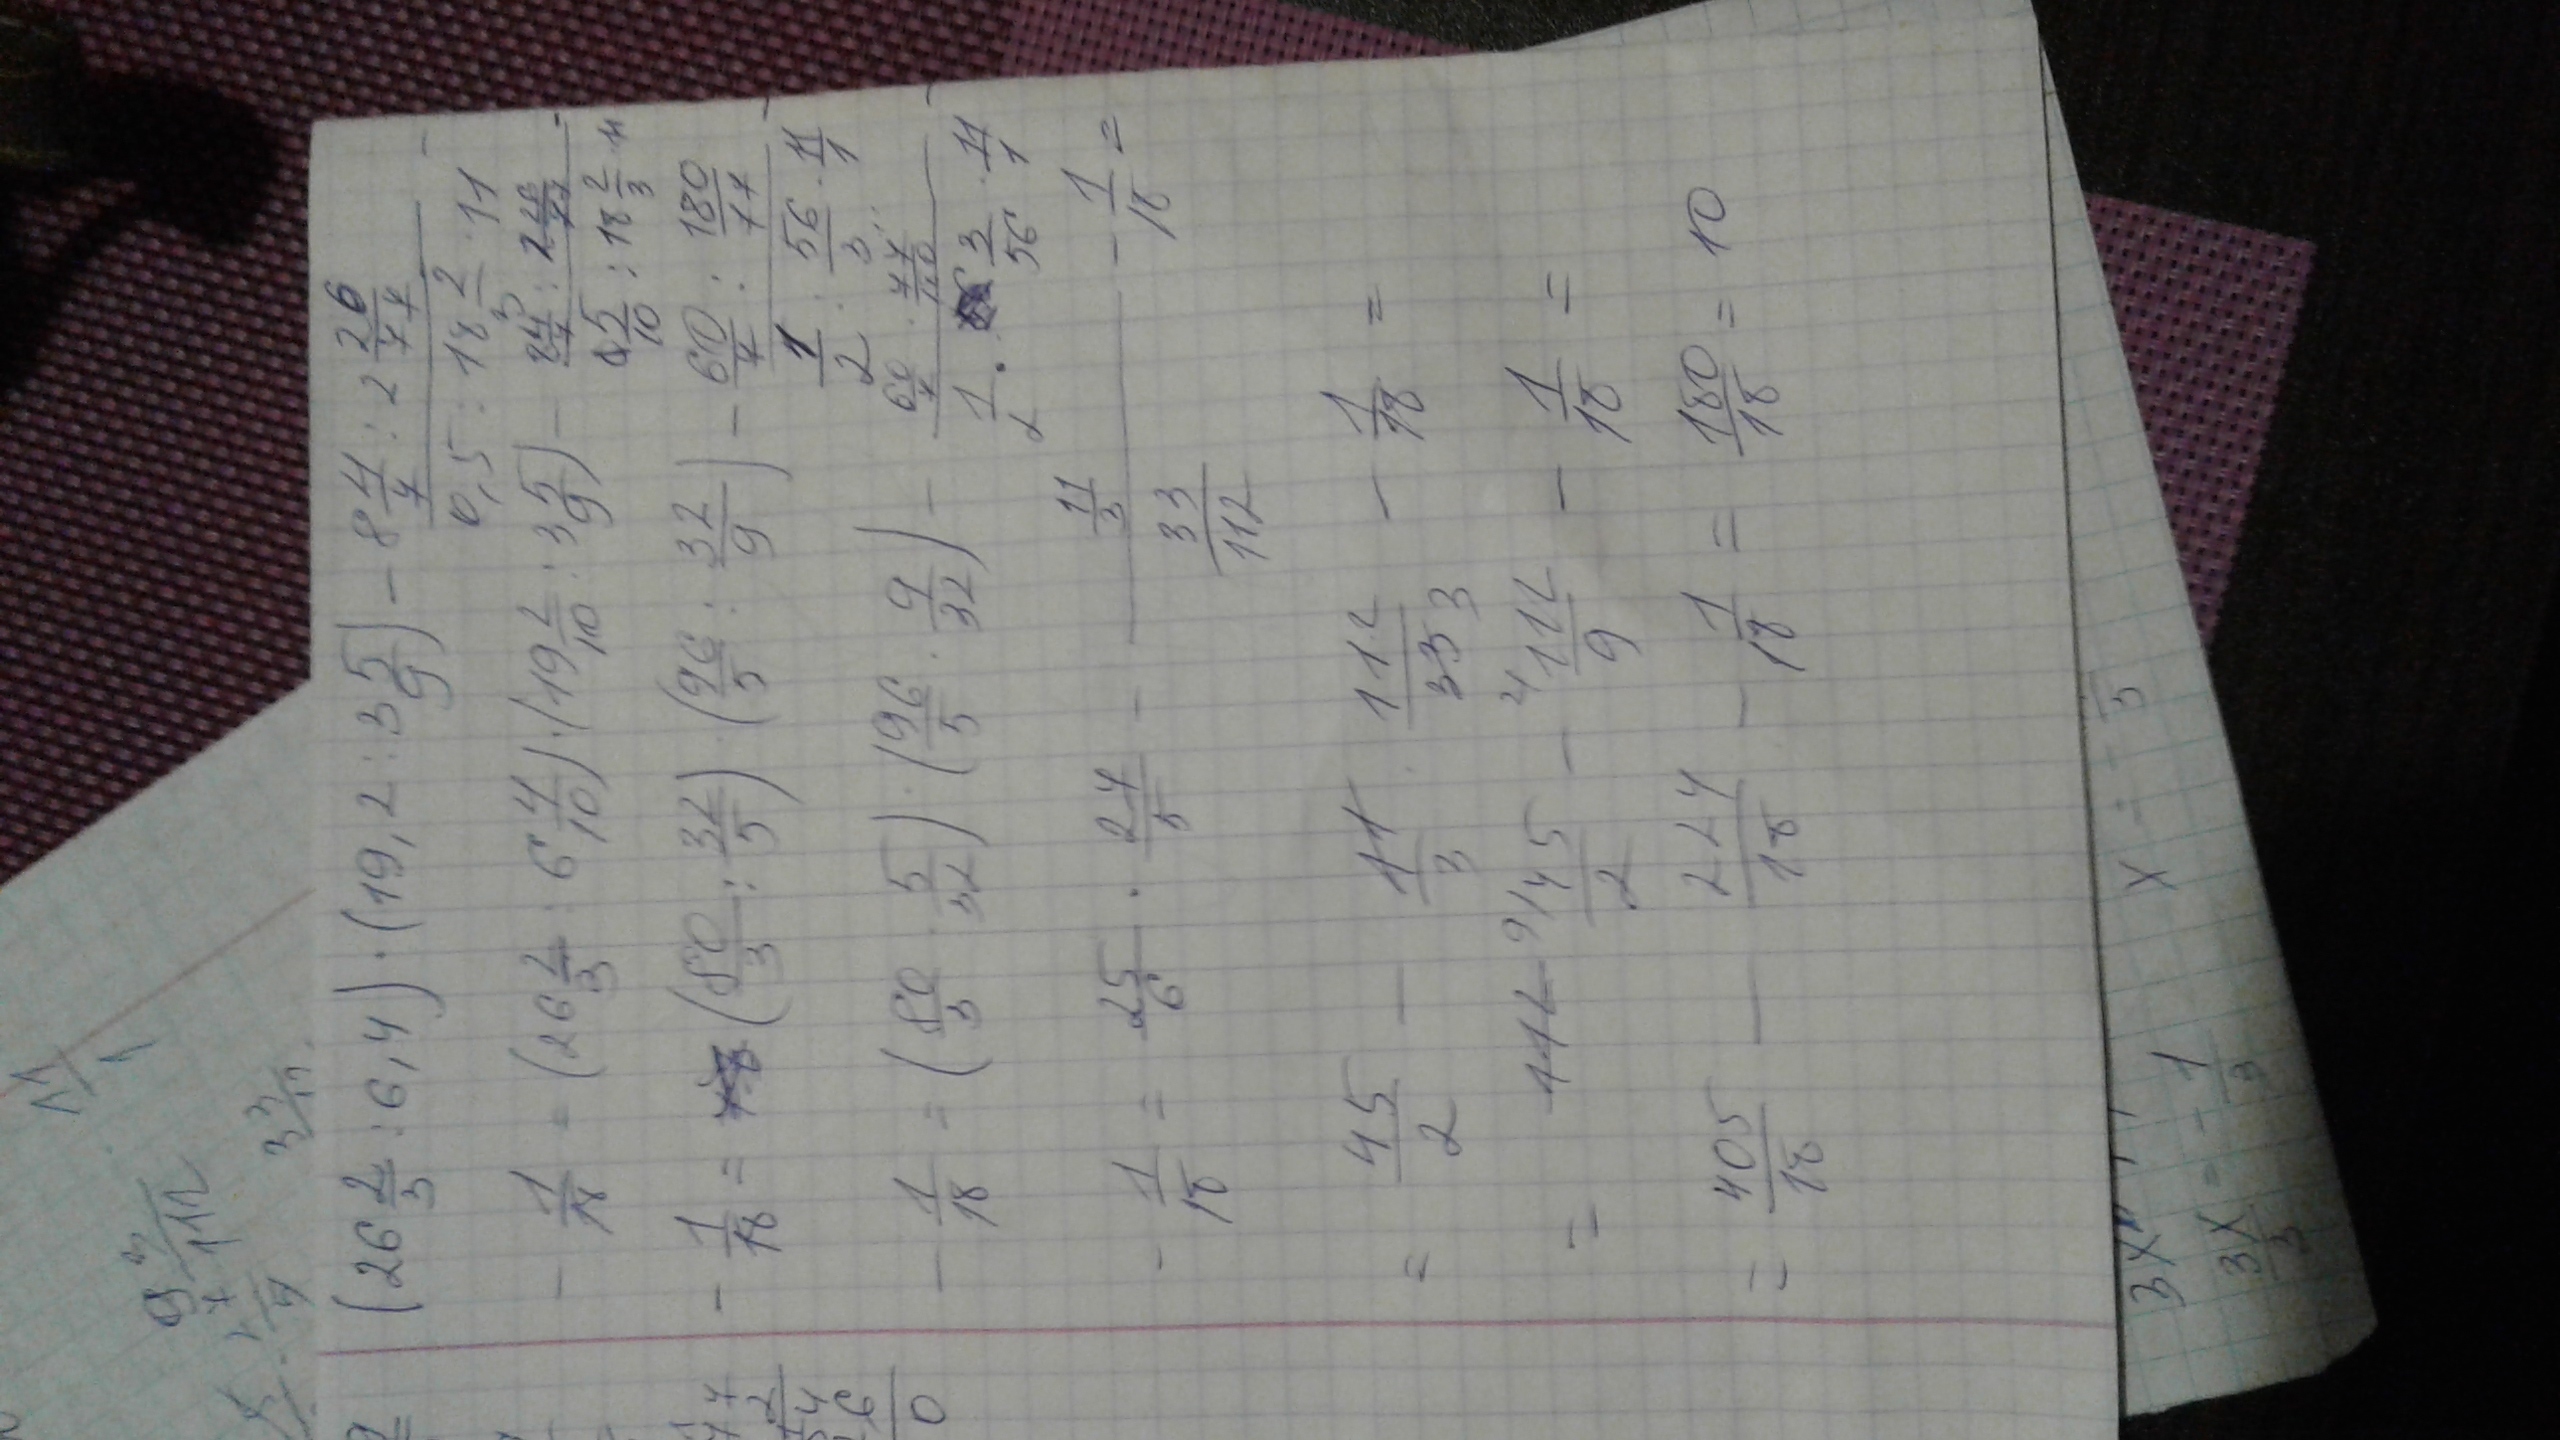 (26 2/3 : 6,4) · (19,2 : 3 5/9) - (8 4/7 : 2 26/77)/(0,5 : 18 2/3 · 11) -
- 1/18 = (26 2/3 : 6 4/10) · (19 2/10 : 3 5/9) - /(5/10 : 18 2/3 · 11) -
- 1/18 = (80/3 : 32/5) · (96/5 : 32/9) - (60/7 : 180/77)/(1/2 : 56/3 · 11/1) -
- 1/18 = (80/3 · 5/32) · (96/5 · 9/32) - (60/7 · 77/180)/(1/2 · 3/56 · 11/1) -
- 1/18 = 25/6 · 27/5 - (11/3)/(33/112) - 1/18 =
= 45/2 - 11/3 · 112/33 3 - 1/18 =
= 9/ 45/2 - 2/ 112/9 - 1/18 =
= 405/18 - 224/18 - 1/18 = 180/18 = 10
3x
3x/3 = - 1/3
x = - /3
11/1
3 3/
0